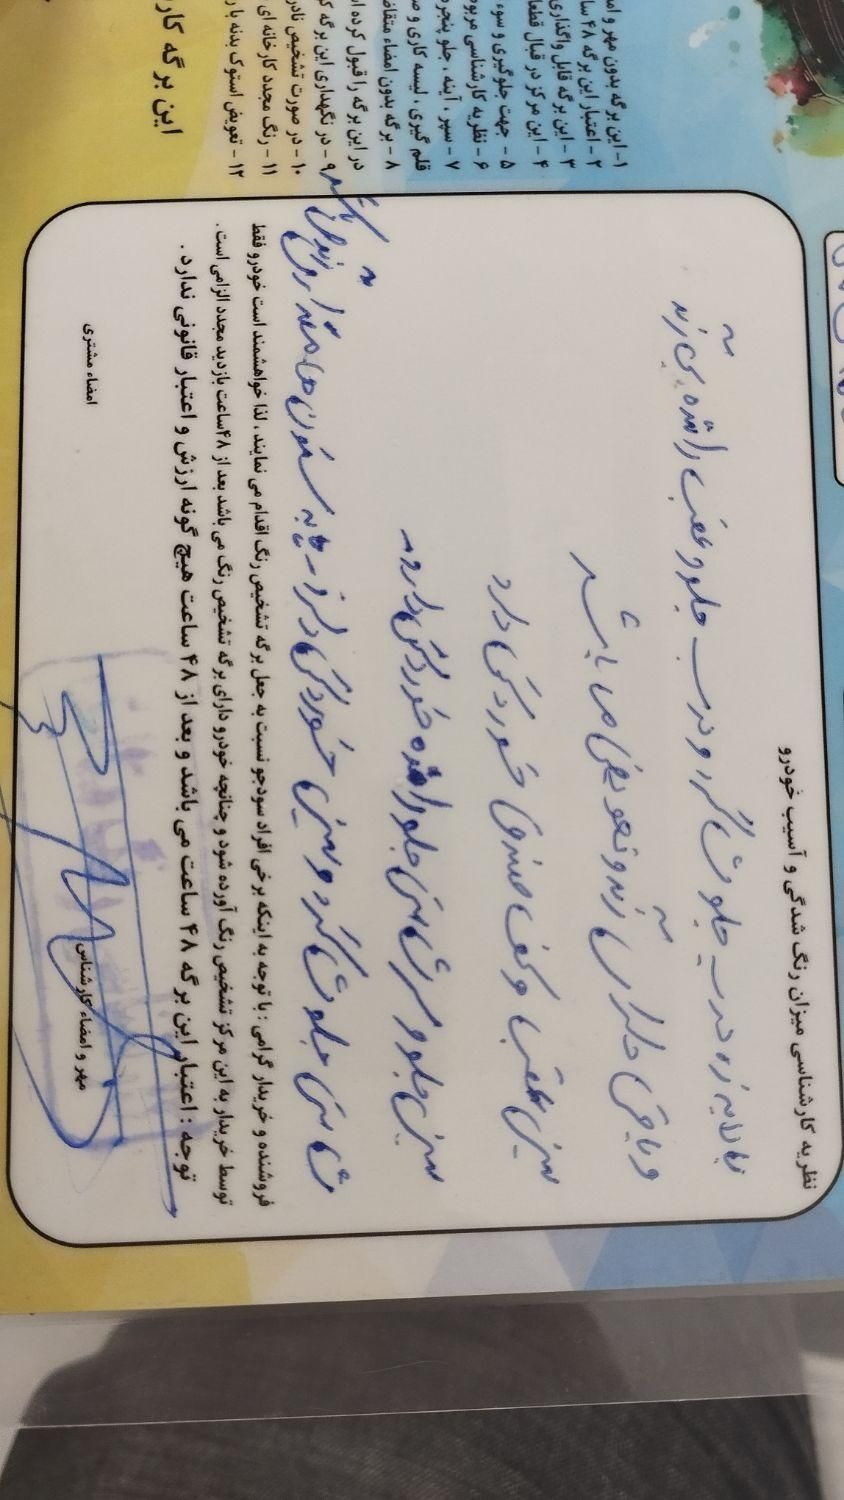 ۱- این برگه بدون مهر و امض
۲- اعتبار این برگه ۴۸ سا
۳- این برگه قابل واگذاری
۴- این مرکز در قبال قطعا
۵- جهت جلوگیری و سوء
۶- نظریه کارشناسی مربو
۷- سپر ، آینه ، جلو پنجره
قلم گیری ، لیسه کاری و ص
۸- برگه بدون امضاء متقاض
در این برگه را قبول کرده ا
۹- در نگهداری این برگه ک
۱۰- در صورت تشخیص نادر
۱۱- رنگ مجدد کارخانه ای
۱۲- تعویض استوک بدنه با ر
این برگه کار
نظریه کارشناسی میزان رنگ شدگی و آسیب خودرو
درب جلو شاگرد و درب جلو و عقب راننده بی رنگ
و باقی دلدار رنگ و تعویض می باشد
سینی عقب و کف صندوق خوردگی دارد
سینی جلو و سرشاسی جلو راننده خوردگی دارد
شاسی جلو شاگرد و سینی خوردگی دارد پایه ستون ها
فروشنده و خریدار گرامی : با توجه به اینکه برخی افراد سودجو نسبت به جعل برگه تشخیص رنگ اقدام می نمایند ، لذا خواهشمند است خودرو فقط
توسط خریدار به این مرکز تشخیص رنگ آورده شود و چنانچه خودرو دارای برگه تشخیص رنگ می باشد بعد از ۴۸ساعت بازدید مجدد الزامی است .
توجه : اعتبار این برگه ۴۸ ساعت می باشد و بعد از ۴۸ ساعت هیچ گونه ارزش و اعتبار قانونی ندارد .
مهر و امضاء کارشناس
امضاء مشتری